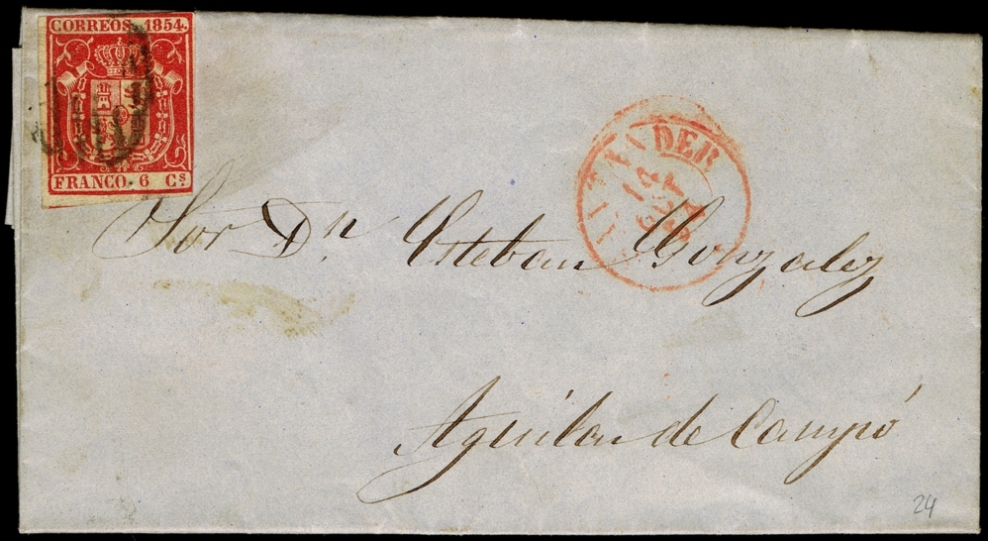 CORREOS 1854.
FRANCO. 6 Cs
ANDER
14
Sor Dn Esteban Gonzalez
Aguilar de Campó
24